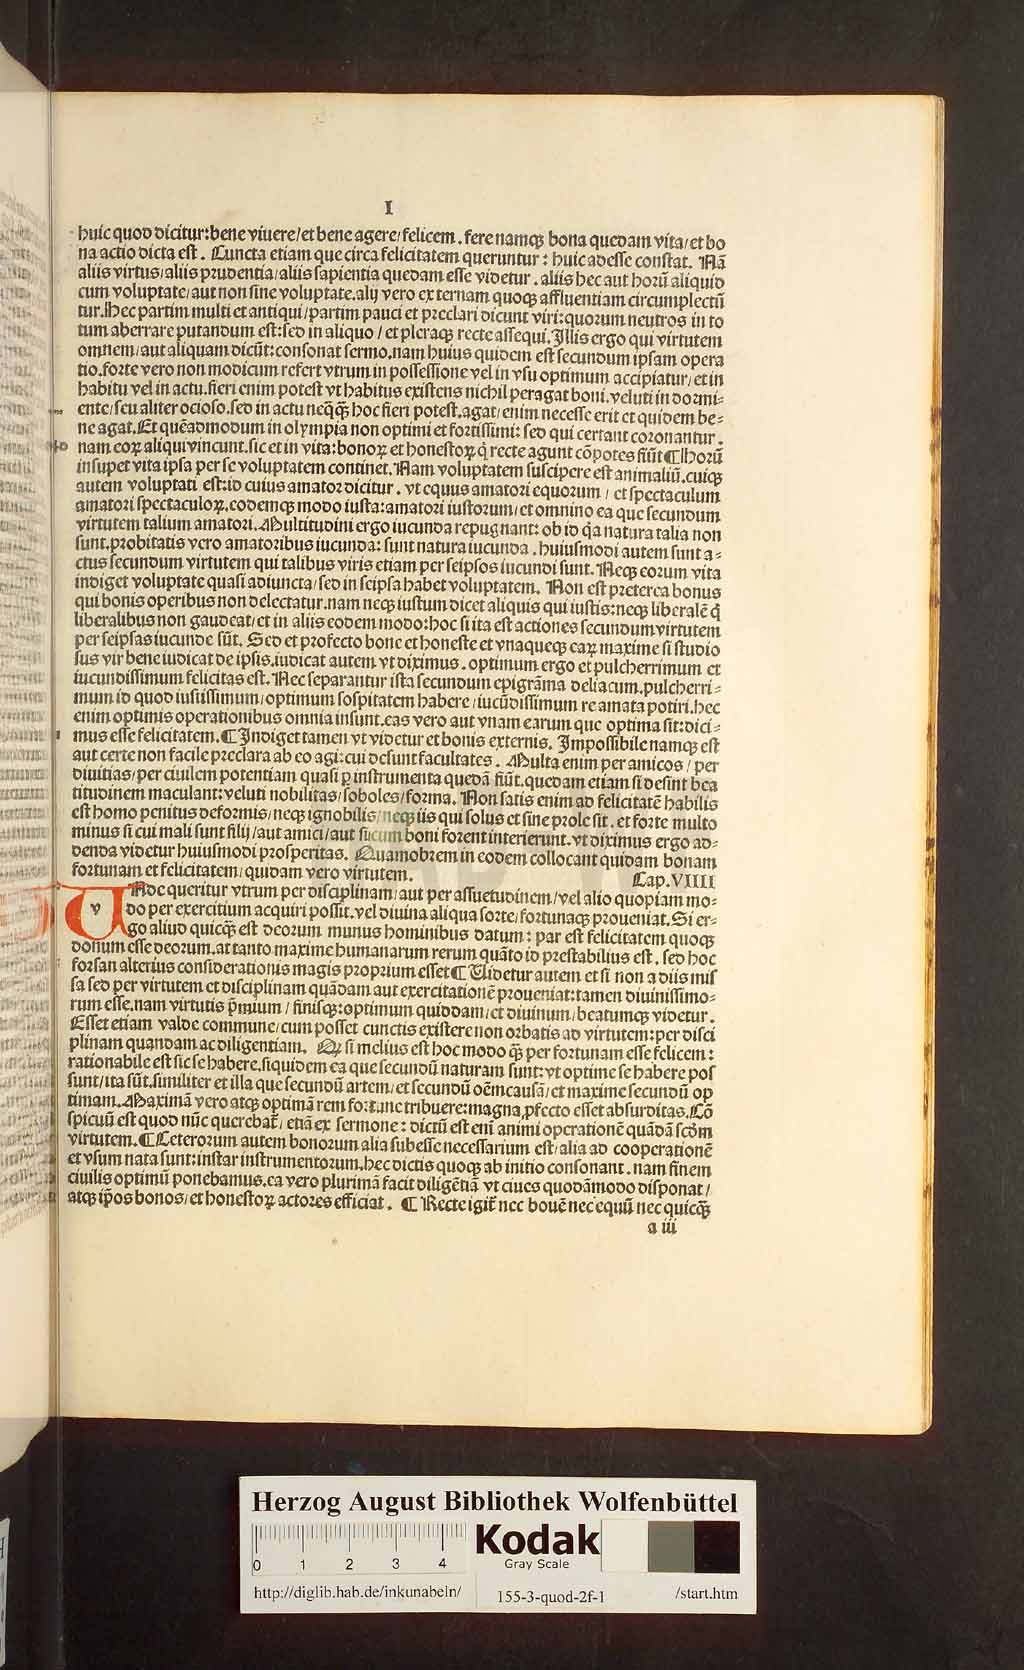 I
huic quod dicitur: bene viuere/ et bene agere/ felicem. fere namqꝫ bona quedam vita/ et bo
na actio dicta est. Cuncta etiam que circa felicitatem queruntur: huic adesse constat. Nā
aliis virtus/ aliis prudentia/ aliis sapientia quedam esse videtur. aliis hec aut horū aliquid
cum voluptate/ aut non sine voluptate. alij vero externam quoqꝫ affluentiam circumplectū
tur. Hec partim multi et antiqui/ partim pauci et preclari dicunt viri: quorum neutros in to
tum aberrare putandum est: sed in aliquo/ et pleraqꝫ recte assequi. Illis ergo qui virtutem
omnem/ aut aliquam dicūt: consonat sermo. nam huius quidem est secundum ipsam opera
tio. forte vero non modicum refert vtrum in possessione vel in vsu optimum accipiatur/ et in
habitu vel in actu. fieri enim potest vt habitus existens nichil peragat boni. veluti in dormi-
ente/ seu aliter ocioso. sed in actu neqꝗꝫ hoc fieri potest. agat/ enim necesse erit et quidem be-
ne agat. Et quēadmodum in olympia non optimi et fortissimi: sed qui certant coronantur.
nam eoꝝ aliqui vincunt. sic et in vita: bonoꝝ et honestoꝝ q̇ recte agunt cōpotes fiūt ¶ Horū
insupet vita ipsa per se voluptatem continet. Nam voluptatem suscipere est animaliū. cuiqꝫ
autem voluptati est: id cuius amator dicitur. vt equus amatori equorum/ et spectaculum
amatori spectaculoꝝ. eodemqꝫ modo iusta: amatori iustorum/ et omnino ea que secundum
virtutem talium amatori. Multitudini ergo iucunda repugnant: ob id q̄a natura talia non
sunt. probitatis vero amatoribus iucunda: sunt natura iucunda. huiusmodi autem sunt a-
ctus secundum virtutem qui talibus viris etiam per seipsos iucundi sunt. Neqꝫ eorum vita
indiget voluptate quasi adiuncta/ sed in seipsa habet voluptatem. Non est preterea bonus
qui bonis operibus non delectatur. nam neqꝫ iustum dicet aliquis qui iustis: neqꝫ liberalē q̇
liberalibus non gaudeat/ et in aliis eodem modo: hoc si ita est actiones secundum virtutem
per seipsas iucunde sūt. Sed et profecto bone et honeste et vnaqueqꝫ eaꝝ maxime si studio
sus vir bene iudicat de ipsis. iudicat autem vt diximus. optimum ergo et pulcherrimum et
iucundissimum felicitas est. Nec separantur ista secundum epigrāma deliacum. pulcherri-
mum id quod iustissimum/ optimum sospitatem habere/ iucūdissimum re amata potiri. hec
enim optimis operationibus omnia insunt. eas vero aut vnam earum que optima sit: dici-
mus esse felicitatem. ¶ Indiget tamen vt videtur et bonis externis. Impossibile namqꝫ est
aut certe non facile preclara ab eo agi: cui desunt facultates. Multa enim per amicos/ per
diuitias/ per ciuilem potentiam quasi ꝑ instrumenta quedā fiūt. quedam etiam si desint bea
titudinem maculant: veluti nobilitas/ soboles/ forma. Non satis enim ad felicitatē habilis
est homo penitus deformis/ neqꝫ ignobilis/ neqꝫ iis qui solus et sine prole sit. et forte multo
minus si cui mali sunt filij/ aut amici/ aut si cum boni forent interierunt. vt diximus ergo ad-
denda videtur huiusmodi prosperitas. Quamobrem in eodem collocant quidam bonam
fortunam et felicitatem/ quidam vero virtutem. Cap. VIIII
v Noc queritur vtrum per disciplinam/ aut per assuetudinem/ vel alio quopiam mo-
do per exercitium acquiri possit. vel diuina aliqua sorte/ fortunaqꝫ proueniat. Si er-
go aliud quicqꝫ est deorum munus hominibus datum: par est felicitatem quoqꝫ
donum esse deorum. at tanto maxime humanarum rerum quāto id prestabilius est. sed hoc
forsan alterius considerationis magis proprium esset ¶ Videtur autem et si non a diis mis
sa sed per virtutem et disciplinam quādam aut exercitationē proueniat: tamen diuinissimo-
rum esse. nam virtutis p̄mium/ finisqꝫ: optimum quiddam/ et diuinum/ beatumqꝫ videtur.
Esset etiam valde commune/ cum posset cunctis existere non orbatis ad virtutem: per disci
plinam quandam ac diligentiam. Qꝫ si melius est hoc modo qꝫ̄ per fortunam esse felicem:
rationabile est sic se habere. siquidem ea que secundū naturam sunt: vt optime se habere pos
sunt/ ita sūt. similiter et illa que secundū artem/ et secundū oēm causā/ et maxime secundū op
timam. Maximā vero atqꝫ optimā rem fortune tribuere: magna ꝓfecto esset absurditas. Cō
spicuū est quod nūc querebat᷑/ etiā ex sermone: dictū est enī animi operationē quādā scd̄m
virtutem. ¶ Ceterorum autem bonorum alia subesse necessarium est/ alia ad cooperationē
et vsum nata sunt: instar instrumentorum. hec dictis quoqꝫ ab initio consonant. nam finem
ciuilis optimū ponebamus. ea vero plurimā facit diligētiā vt ciues quodāmodo disponat/
atqꝫ ip̄os bonos/ et honestoꝝ actores efficiat. ¶ Recte igit᷑ nec bouē nec equū nec quicqꝫ̄
a iii
Herzog August Bibliothek Wolfenbüttel
0 1 2 3 4
Kodak
Gray Scale
http://diglib.hab.de/inkunabeln/ 155-3-quod-2f-1 /start.htm